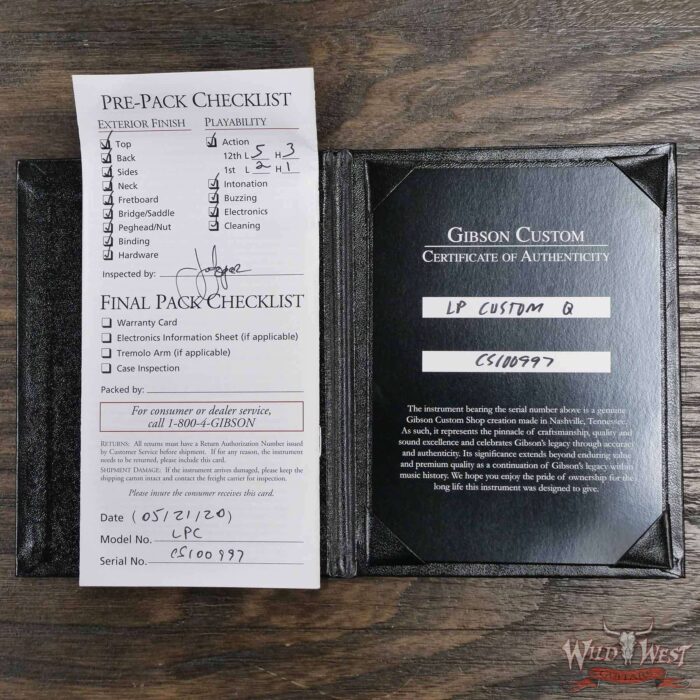 PRE-PACK CHECKLIST
EXTERIOR FINISH
Top
Back
Sides
Neck
Fretboard
Bridge/Saddle
Peghead/Nut
Binding
Hardware
PLAYABILITY
Action
12th L 5 H 3
1st L 2 H 1
Intonation
Buzzing
Electronics
Cleaning
Inspected by:
FINAL PACK CHECKLIST
Warranty Card
Electronics Information Sheet (if applicable)
Tremolo Arm (if applicable)
Case Inspection
Packed by:
For consumer or dealer service,
call 1-800-4-GIBSON
RETURNS: All returns must have a Return Authorization Number issued
by Customer Service before shipment. If for any reason, the instrument
needs to be returned, please include this card.
SHIPMENT DAMAGE: If the instrument arrives damaged, please keep the
shipping carton intact and contact the freight carrier for inspection.
Please insure the consumer receives this card.
Date (05/21/20)
Model No. LPC
Serial No. CS100997
GIBSON CUSTOM
CERTIFICATE OF AUTHENTICITY
LP CUSTOM Q
CS100997
The instrument bearing the serial number above is a genuine
Gibson Custom Shop creation made in Nashville, Tennessee.
As such, it represents the pinnacle of craftsmanship, quality and
sound excellence and celebrates Gibson's legacy through accuracy
and authenticity. Its significance extends beyond enduring value
and premium quality as a continuation of Gibson's legacy within
music history. We hope you enjoy the pride of ownership for the
long life this instrument was designed to give.
WILD WEST
GUITARS